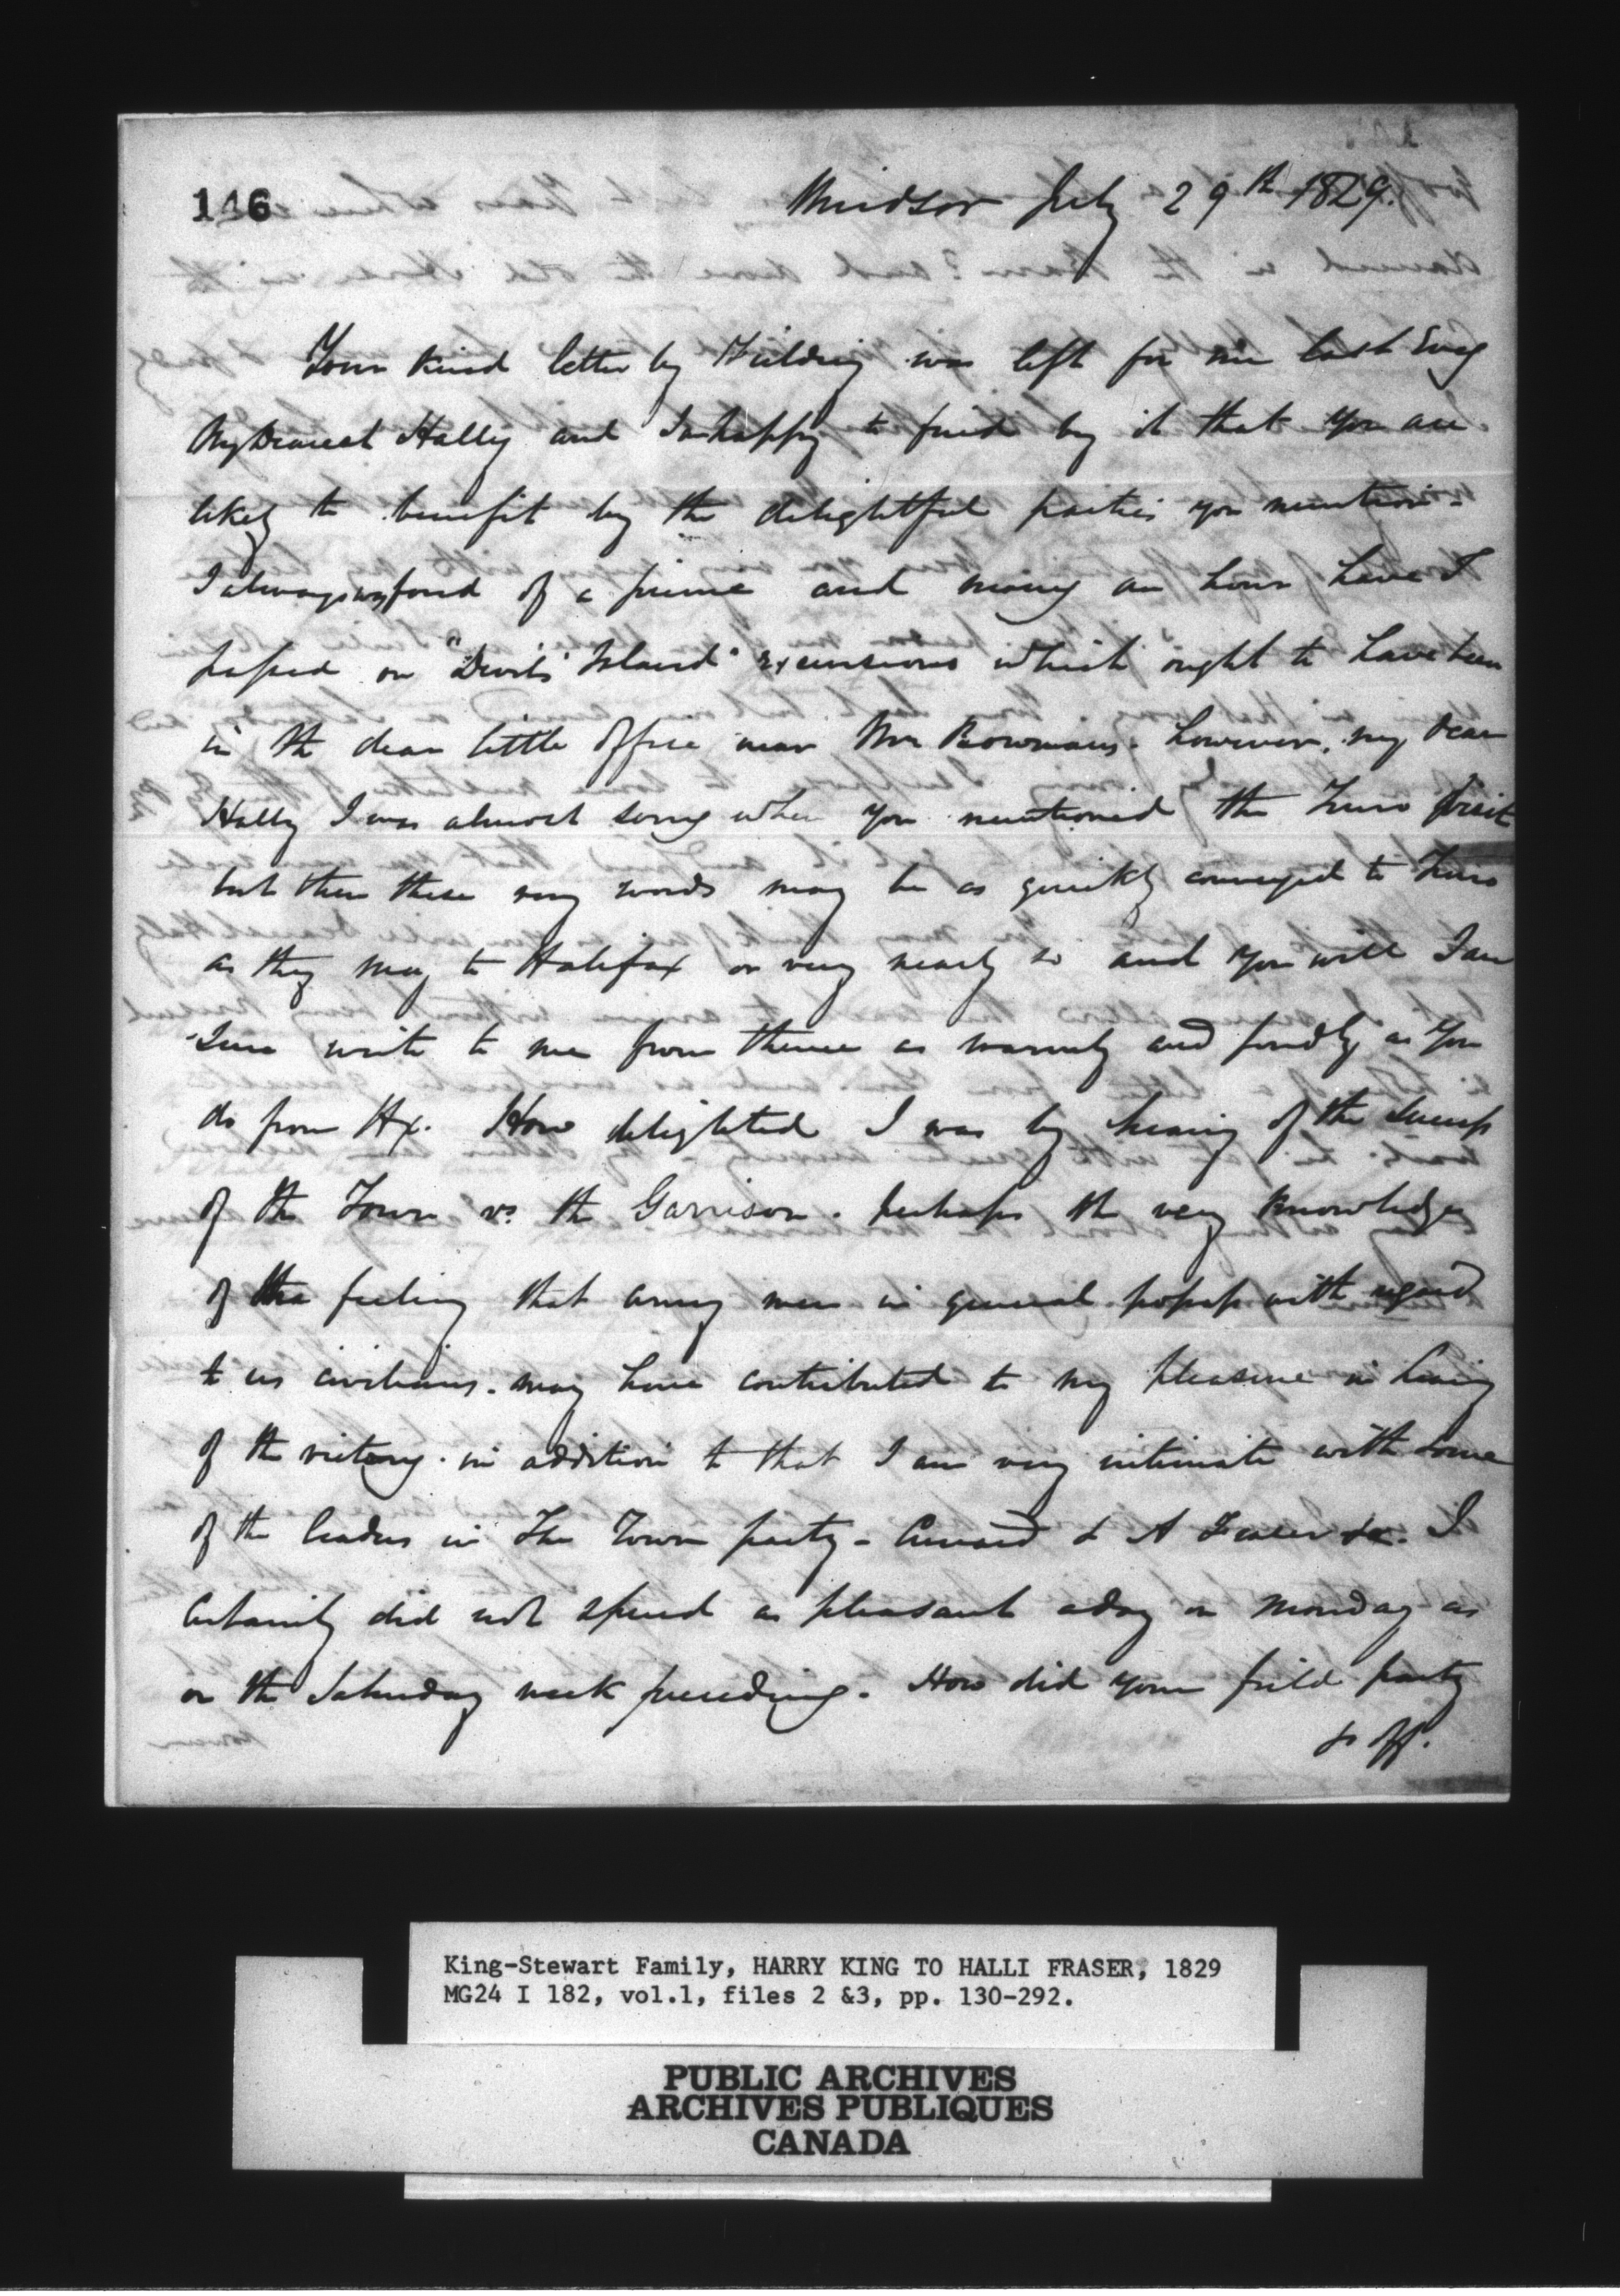 146
Windsor July 29th 1829.
Your kind letter by Fielding was left for me last Eveg
My Dearest Hally and I am happy to find by it that you are
likely to benefit by the delightful parties you mention -
I always was fond of a and many an hour have I
passed on "Devils Island" excursions which ought to have been
in the dear little office near Mrs Bowmans. however, my Dear
Hally I was almost sorry when you mentioned the Truro visit
but then these very words may be as quickly conveyed to Truro
as they may to Halifax or very nearly so and you will I am
sure write to me from thence as warmly and fondly as you
do from Hx. How delighted I was by hearing of the success
of the Town vs. the Garrison. perhaps the very knowledge
of the feeling that army men in general possess with regard
to us civilians. may have contributed to my pleasure in hearing
of the victory. in addition to that I am very intimate with some
of the leaders in The Town party - Cunard & A Fraser &c. I
certainly did not spend as pleasant a day on Monday as
on the Saturday week preceding. How did your field party
go off.
King-Stewart Family, HARRY KING TO HALLI FRASER, 1829
MG24 I 182, vol.1, files 2 &3, pp. 130-292.
PUBLIC ARCHIVES
ARCHIVES PUBLIQUES
CANADA